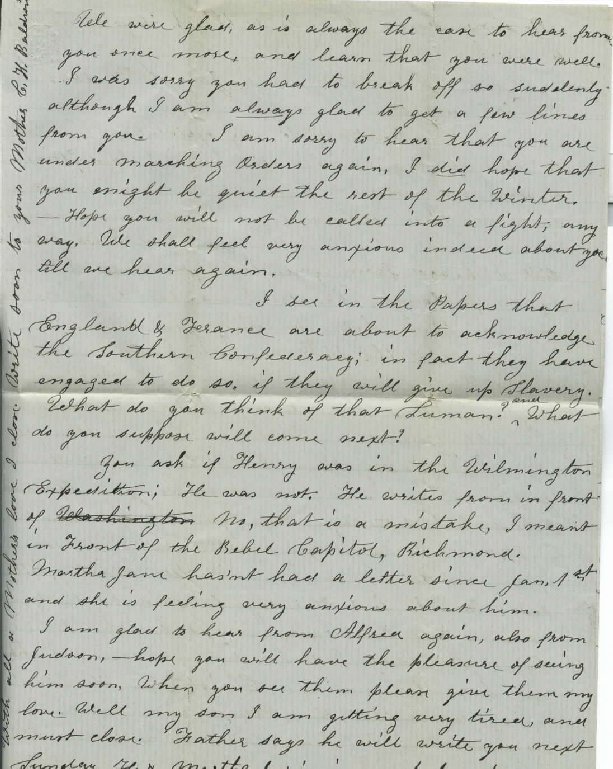 We wire glad, as is always the case to hear from
you once more, and learn that you were well.
I was sorry you had to break off so suddenly
although I am always glad to get a few lines
from you. I am sorry to hear that you are
under marching Orders again, I did hope that
you might be quiet the rest of the Winter.
— Hope you will not be called into a fight, any
way. We shall feel very anxious indeed about you
till we hear again.
I see in the Papers that
England & France are about to acknowledge
the Southern Confederacy; in fact they have
engaged to do so, if they will give up Slavery.
What do you think of that Luman? and What
do you suppose will come next?
You ask if Henry was in the Wilmington
Expedition; He was not. He writes from in front
of Washington No, that is a mistake, I meant
in Front of the Rebel Capitol, Richmond.
Martha Jane hasn't had a letter since Jan. 1st
and she is feeling very anxious about him.
I am glad to hear from Alfred again, also from
Judson, — hope you will have the pleasure of seeing
him soon. When you see them please give them my
love. Well my son I am getting very tired, and
must close. Father says he will write you next
Sunday.
With all a Mother's love I close Write soon to your Mother C. H. Baldwin